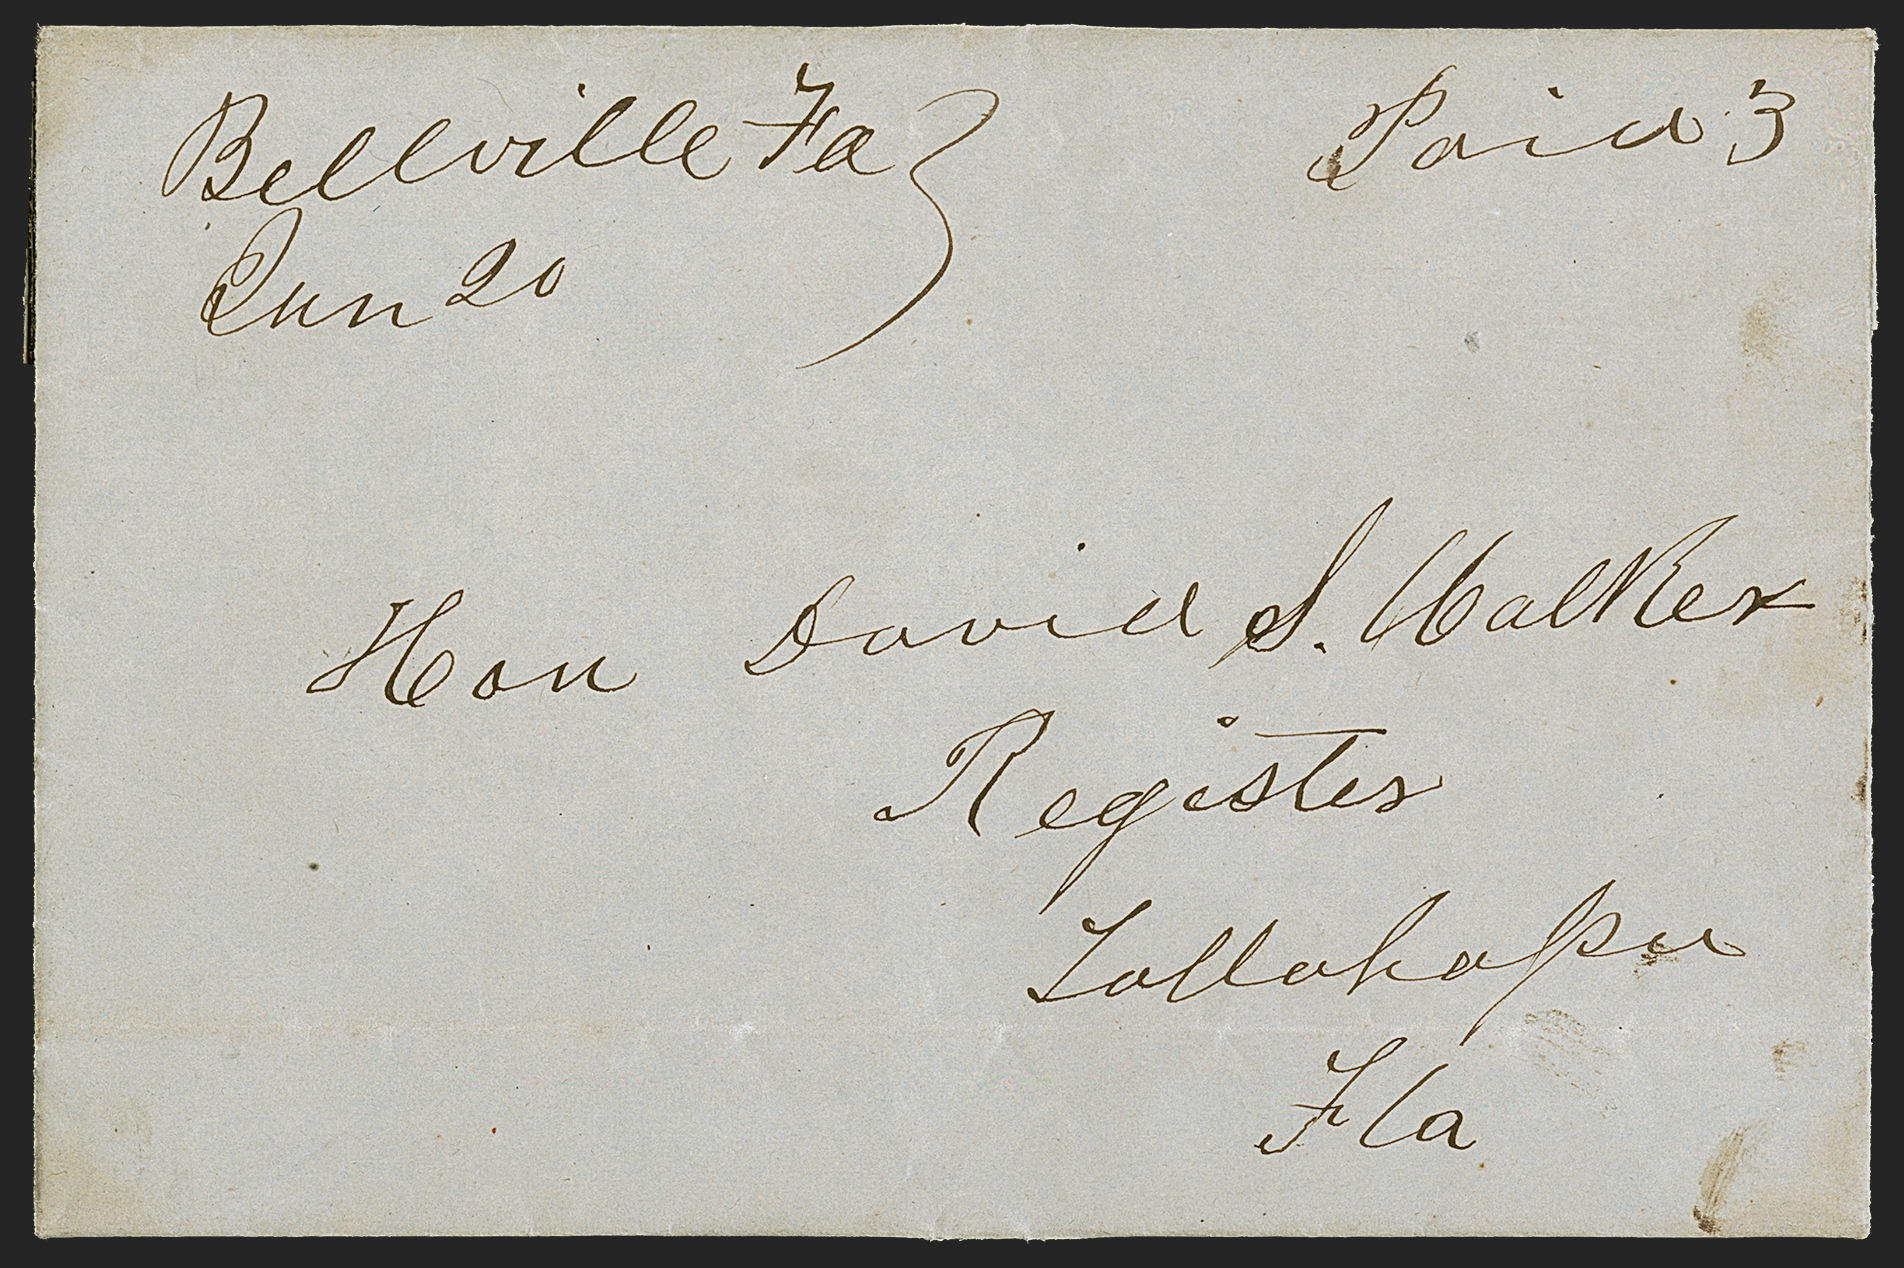 Bellville Fa
Paid 3
Jun 20
Hon David S. Walker
Register
Tallahassee
Fla